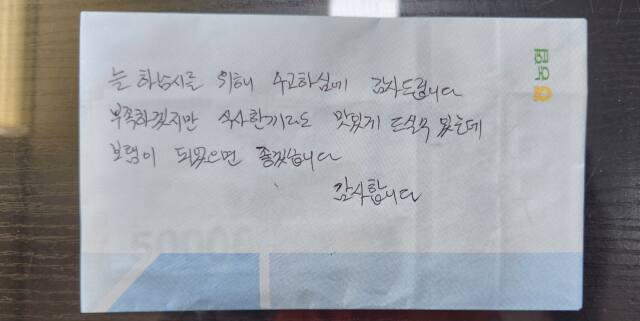 늘 하남시를 위해 수고하심에 감사드립니다
부족하겠지만 식사한끼라도 맛있게 드실수 있는데
보탬이 되었으면 좋겠습니다
감사합니다
50000
농협